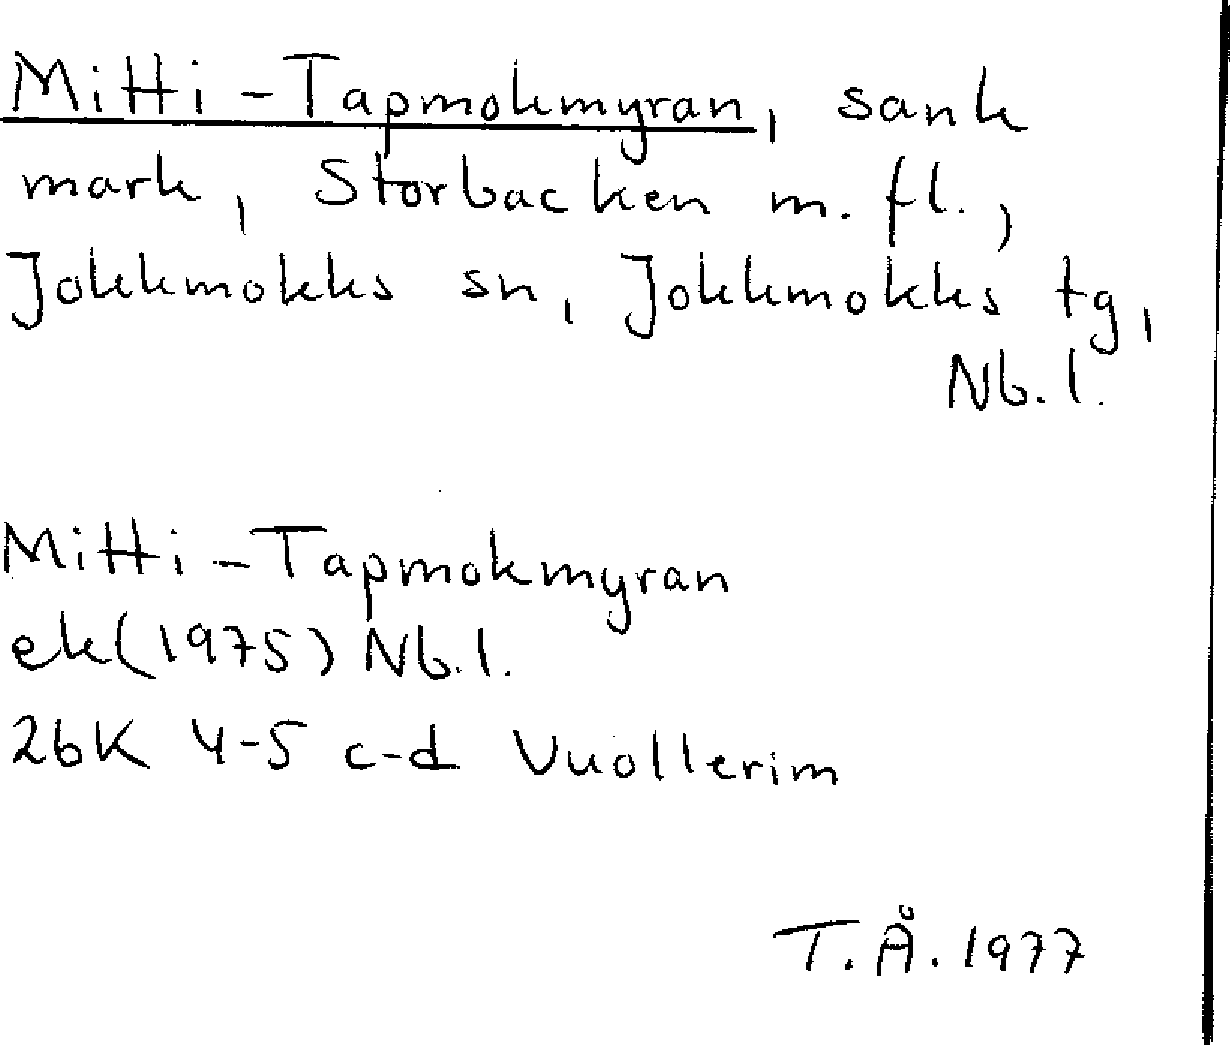 Mitti-Tapmokmyran, sank
mark, Storbacken m. fl.,
Jokkmokks sn, Jokkmokks tg,
Nb. l.
Mitti-Tapmokmyran
ek(1975) Nb. l.
26K 4-5 c-d Vuollerim
T. Å. 1977